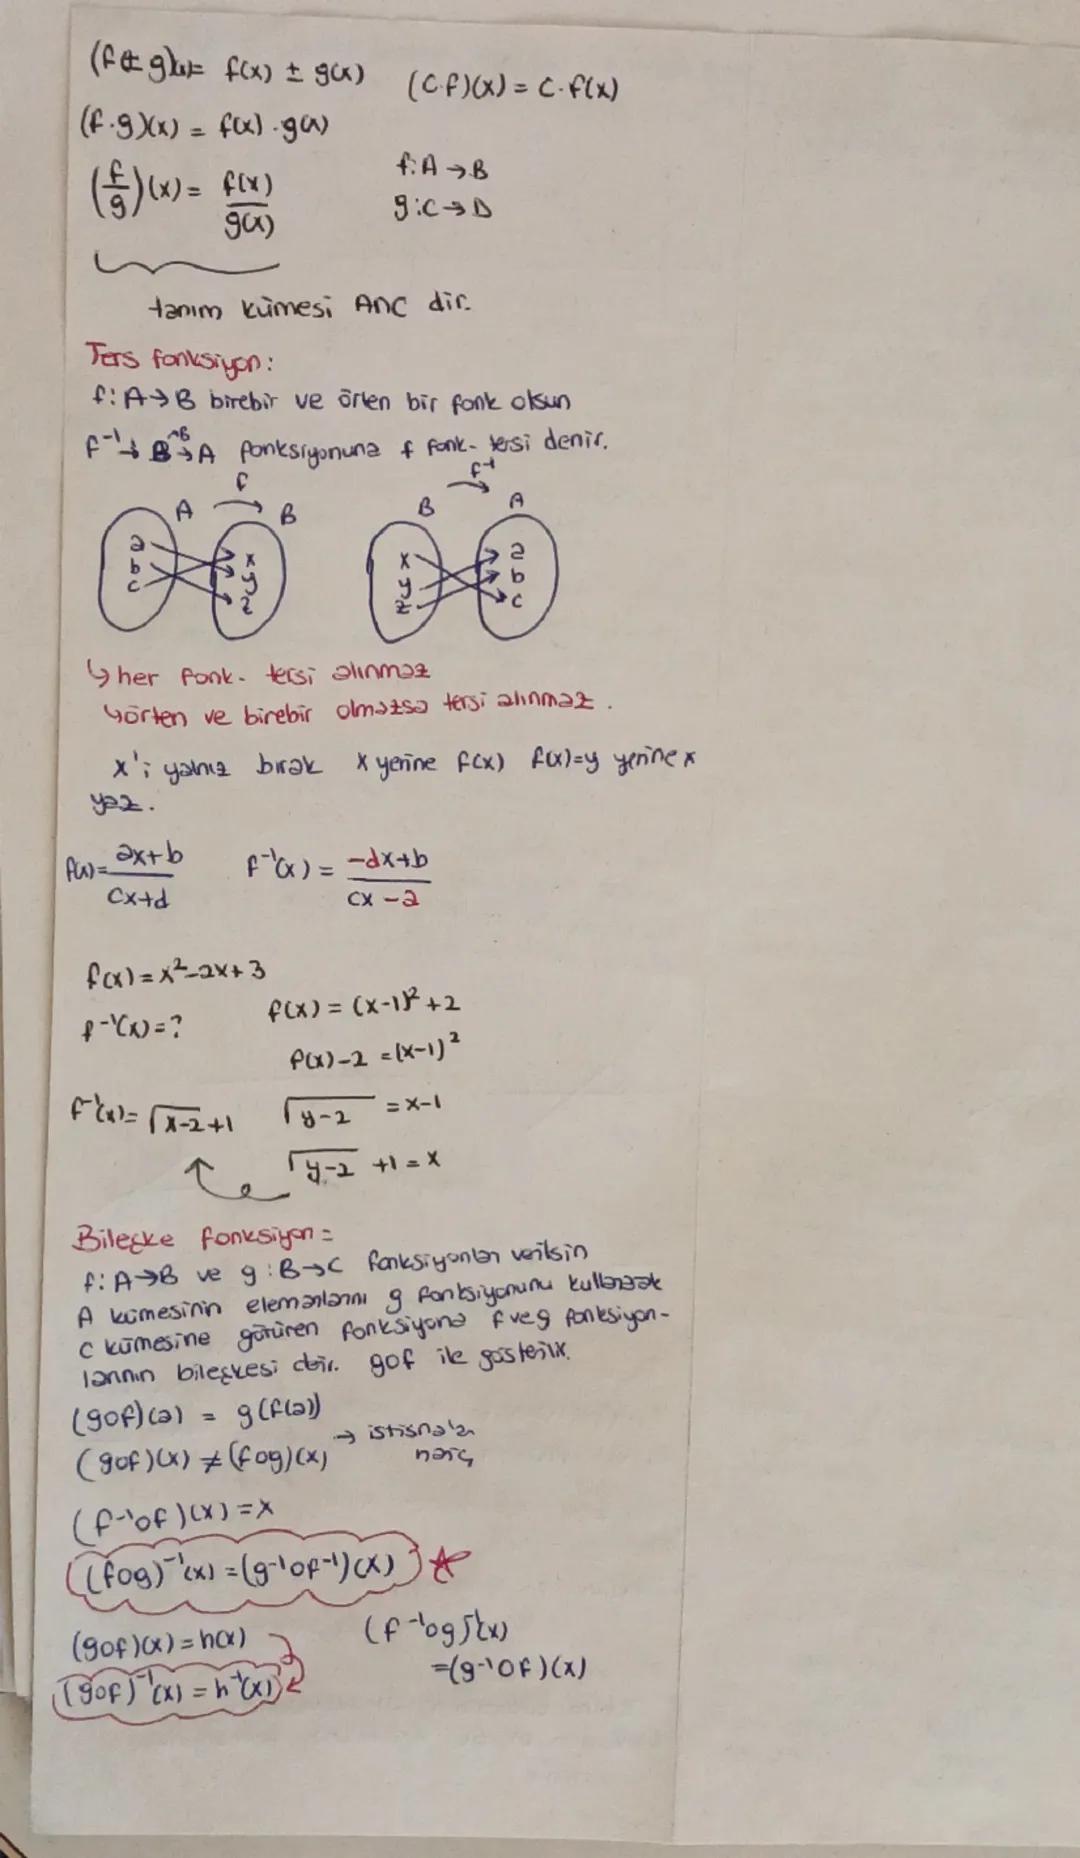 (f ± g)(x) = f(x) ± g(x) (c.f)(x) = c.f(x)
(f.g)(x) = f(x).g(x)
(f/g)(x) = f(x)/g(x)
f: A → B
g: C → D
tanım kümesi A∩C dir.
Ters fonksiyon:
f: A → B birebir ve örten bir fonk olsun
f⁻¹: B → A fonksiyonuna f fonk. tersi denir.
f
A B
a x
b y
c z
f⁻¹
B A
x a
y b
z c
↳ her fonk. tersi alınmaz
↳ örten ve birebir olmazsa tersi alınmaz.
x'i yalnız bırak x yerine f(x) f(x)=y yerine x
yaz.
f(x) = ax+b / cx+d f⁻¹(x) = -dx+b / cx-a
f(x) = x²-2x+3
f⁻¹(x) = ?
f(x) = (x-1)² + 2
f(x)-2 = (x-1)²
√y-2 = x-1
√y-2 + 1 = x
f⁻¹(x) = √x-2 + 1
Bileşke fonksiyon =
f: A → B ve g: B → C fonksiyonları verilsin
A kümesinin elemanlarını g fonksiyonunu kullanarak
C kümesine götüren fonksiyona f ve g fonksiyon-
larının bileşkesi denir. gof ile gösterilir.
(gof)(a) = g(f(a))
(gof)(x) ≠ (fog)(x) → istisnalar
hariç
(f⁻¹of)(x) = x
(fog)⁻¹(x) = (g⁻¹of⁻¹)(x)
(gof)(x) = h(x)
(gof)⁻¹(x) = h⁻¹(x)
(f⁻¹og)⁻¹(x)
=(g⁻¹of)(x)